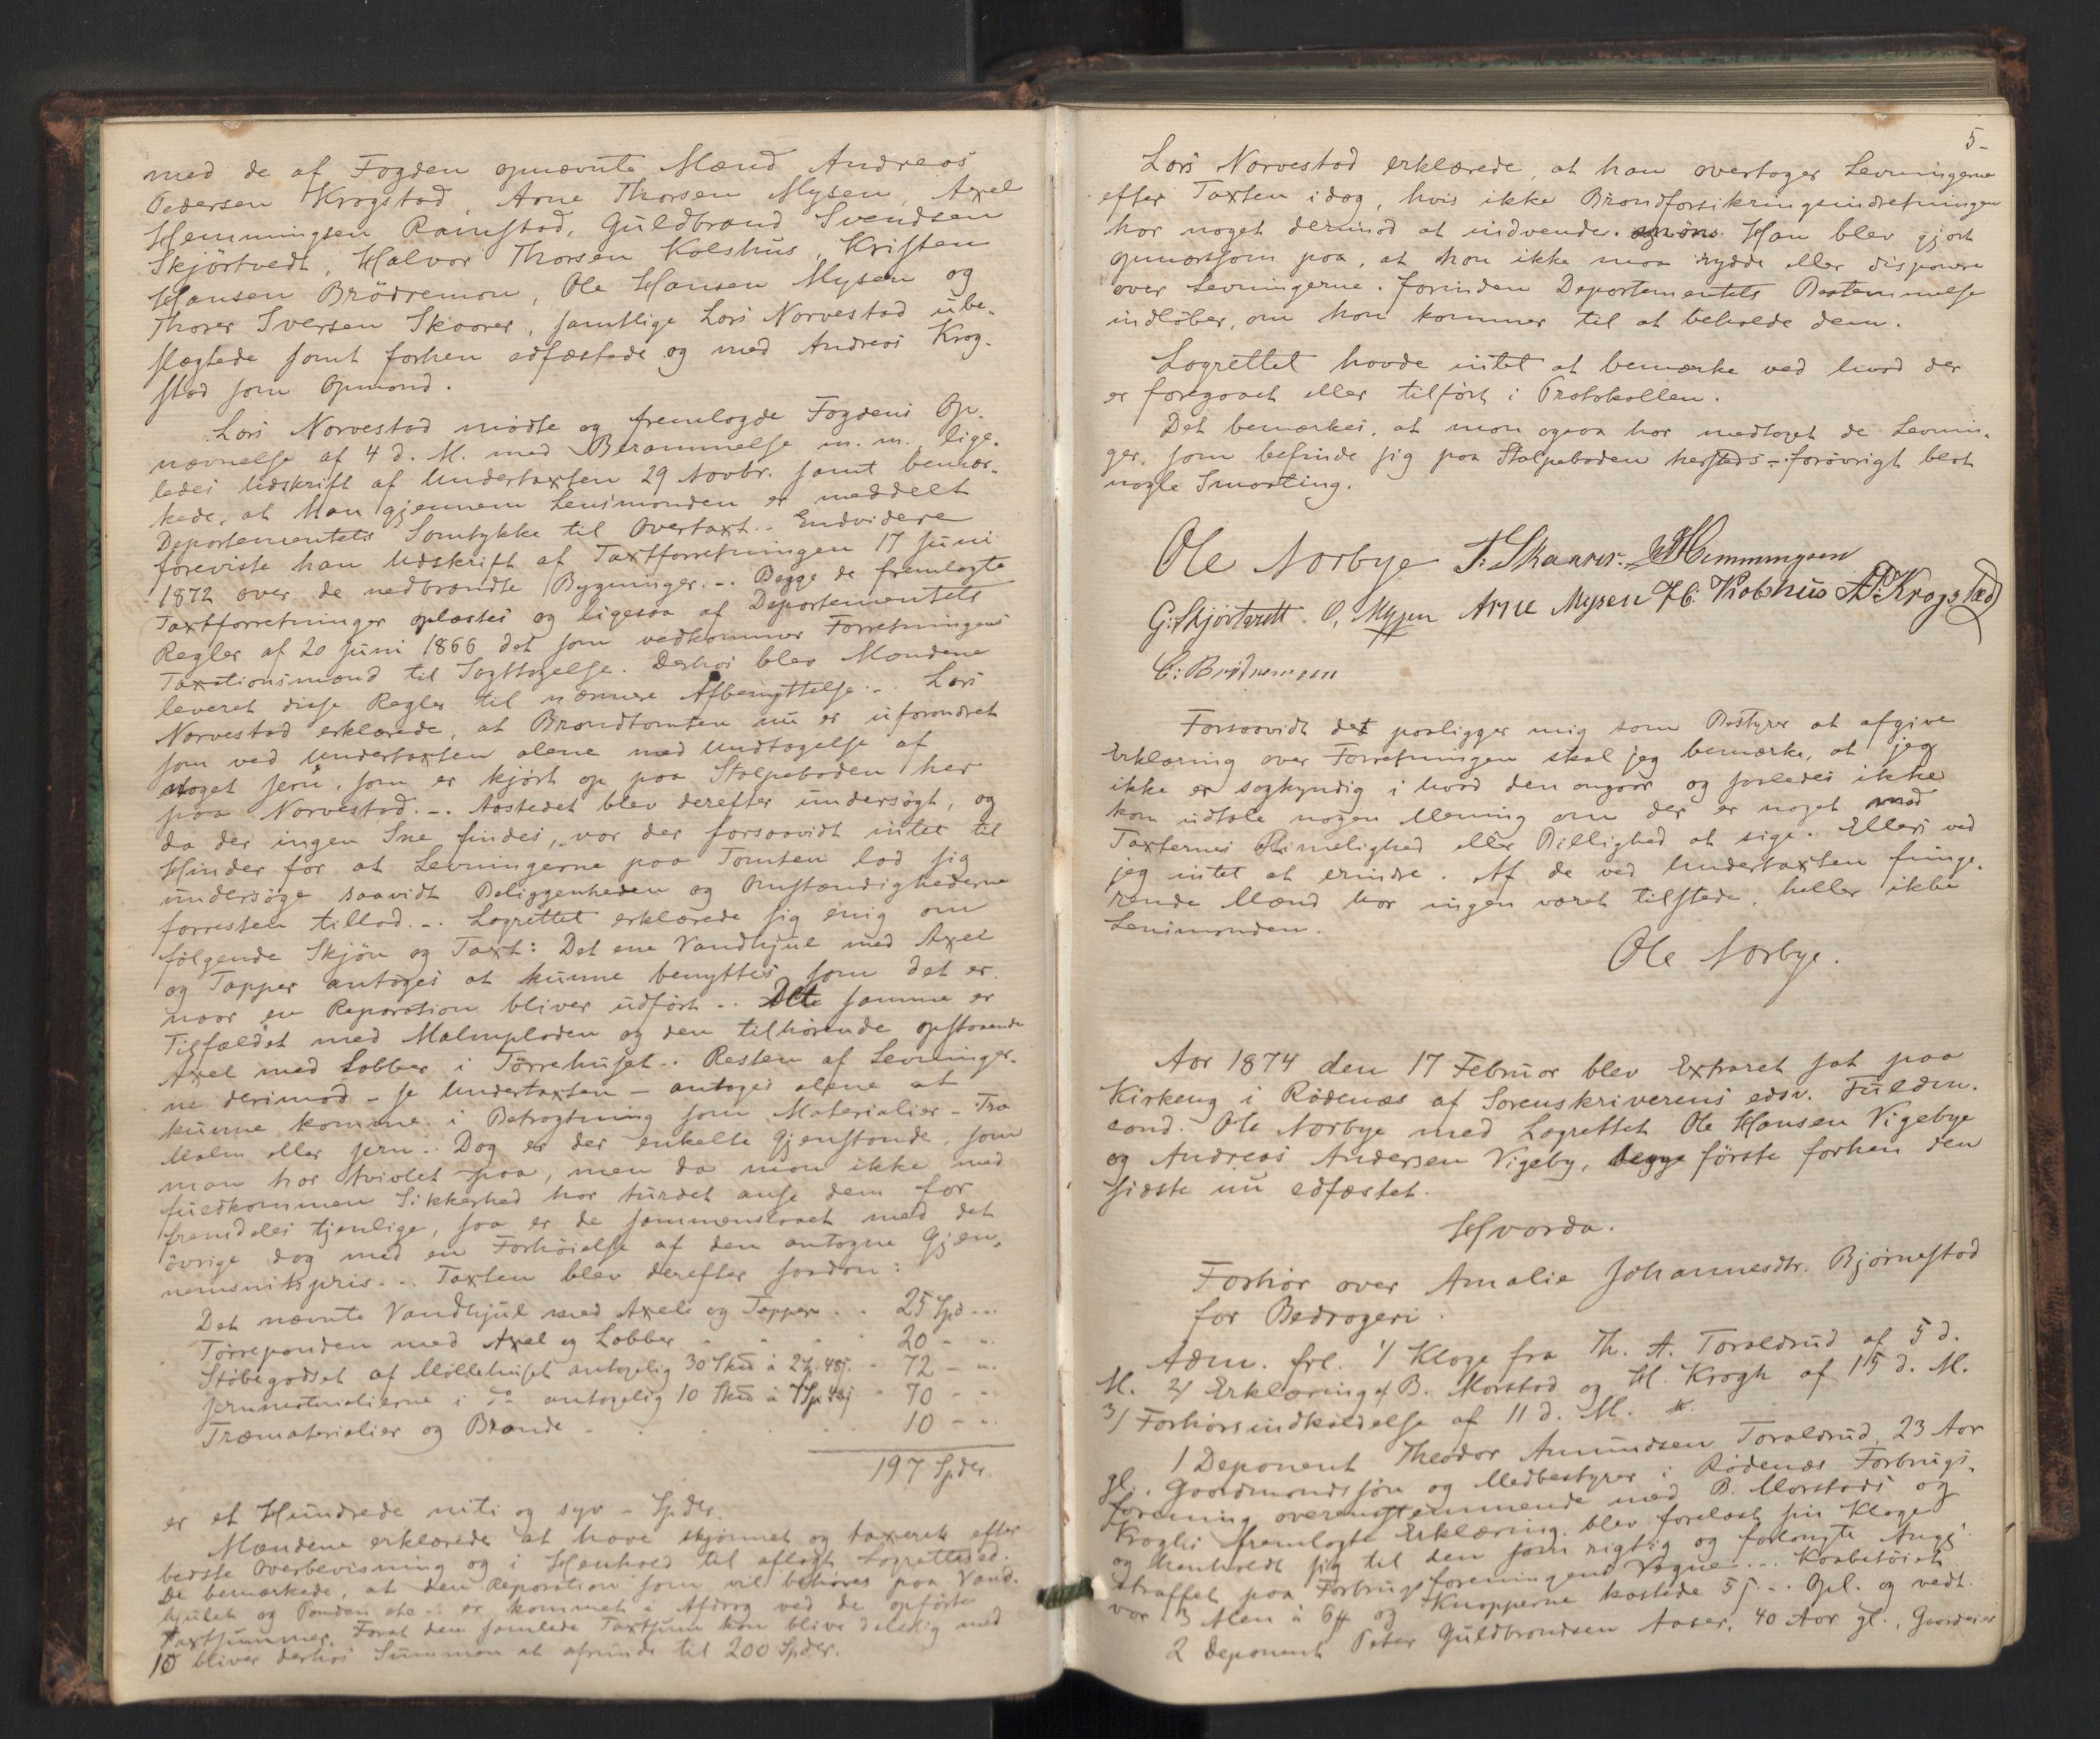 med de af Fogden opnævnte Mænd Andreas
Pedersen Krogstad, Arne Thorsen Mysen, Axel
Hemmingsen Ramstad, Guldbrand Svendsen
Skjörtvedt, Halvor Thorsen Kolshus, Kristen
Hansen Brödremon, Ole Hansen Mysen og
Thorer Iversen Skaarer, samtlige Lars Narvestad ube-
slægtede samt forhen edfæstede og med Andreas Krog-
stad som Opmand.
Lars Narvestad mödte og fremlagde Fogdens Op-
nævnelse af 4 d. M. med Berammelse m. m. lige-
ledes Udskrift af Undertaxten 29 Novbr. samt bemær-
kede, at Man gjennem Lensmanden er meddelt
Departementets Samtykke til Overtaxt. - Endvidere
foreviste han Udskrift af Taxtforretningen 17 Juni
1872 over de nedbrændte Bygninger. - Begge de fremlagte
Taxtforretninger oplæstes og ligesaa af Departementets
Regler af 20 Juni 1866 det som vedkommer Forretningens
Taxationsmænd til Iagttagelse. Derhos blev Mændene
leveret disse Regler til nærmere Afbenyttelse. - Lars
Narvestad erklærede, at Brandtomten nu er uforandret
som ved Undertaxten alene med Undtagelse af
noget Jern, som er kjört op paa Stolpeboden her
paa Narvestad. - Aastedet blev derefter undersögt, og
da der ingen Sne findes, var der forsaavidt intet til
Hinder for at Levningerne paa Tomten lod sig
undersöge saavidt Beliggenheden og Omstændighederne
forresten tillod. - Lagrettet erklærede sig enig om
fölgende Skjön og Taxt: Det ene Vandhjul med Axel
og Tapper antages at kunne benyttes som det er
naar en Reparation bliver udfört. - Det samme er
Tilfældet med Malmpladen og den tilhörende opstaaende
Axel med Labber i Törrehuset. - Resten af Levninger-
ne derimod - se Undertaxten - antages alene at
kunne komme i Betragtning som Materialier - Træ
Malm eller Jern. - Dog er der enkelte Gjenstande, som
man har tvivlet paa, men da man ikke med
fuldkommen Sikkerhed har turdet anse dem for
fremdeles tjenlige, saa er de sammenslaaet med det
övrige dog med en Forhöielse af den antagne Gjen-
nemsnitspris. - Taxten blev derefter saadan:
Det nævnte Vandhjul med Axel og Tapper . . 25 Spd - -
Törrepanden med Axel og Labber - - - 20 - -
Stöbegodset af Möllehuset antagelig 30 Skd à 2 Sp. 48 s. - 72 - -
Jernmaterialierne i do antagelig 10 Skd à 7 Sp - 70 - -
Træmaterialier og Brænde - . . . 10 - -
197 Spdlr.
er et Hundrede niti og syv - Spdlr.
Mændene erklærede at have skjönnet og taxeret efter
bedste Overbevisning og i Henhold til aflagt Lagrettesed.
De bemærkede, at den Reparation som vil behöves paa Vand-
hjulet og Panden etc. - er kommet i Afdrag ved de opförte
Taxtsummer. Forat den samlede Taxtsum kan blive delelig med
10 bliver derhos Summen at afrunde til 200 Spdlr.
5-
Lars Narvestad erklærede, at han overtager Levningerne
efter Taxten idag, hvis ikke Brandforsikringsindretningen
har noget derimod at indvende. Han blev gjort
opmærksom paa, at han ikke maa rydde eller disponere
over Levningerne, forinden Departementets Bestemmelse
indlöber, om han kommer til at beholde dem.
Lagrettet havde intet at bemærke ved hvad der
er foregaaet eller tilfört i Protokollen.
Det bemærkes, at man ogsaa har medtaget de Levnin-
ger, som befinde sig paa Stolpeboden hersteds - forövrigt blot
nogle Smaating.
Ole Norbye T. Skaarer. Hemmingsen
G. Skjörtvett. O. Mysen Arne Mysen H. Kolshus A. P. Krogstad
C. Brödremoen
Forsaavidt det paaligger mig som Bestyrer at afgive
Erklæring over Forretningen skal jeg bemærke, at jeg
ikke er sagkyndig i hvad den angaar og saaledes ikke
kan udtale nogen Mening om der er noget mod
Taxternes Rimelighed eller Billighed at sige. Ellers ved
jeg intet at erindre. Af de ved Undertaxten funge-
rende Mænd har ingen været tilstede, heller ikke
Lensmanden.
Ole Norbye.
Aar 1874 den 17 Februar blev Extraret sat paa
Kirkeng i Rödenæs af Sorenskriverens edsv. Fuldm.
cand. Ole Norbye med Lagrettet Ole Hansen Vigebye
og Andreas Andersen Vigeby, förste forhen den
sidste nu edfæstet.
Hvorda.
Forhör over Amalie Johannesdtr. Björnestad
for Bedrageri.
Adm. frl. 1/ Klage fra Th. A. Toraldrud af 5 d.
M. 2/ Erklæring af B. Morstad og H. Krogh af 15 d. M.
3/ Forhörsindkaldelse af 11 d. M.
1 Deponent Theodor Amundsen Toraldrud, 23 Aar
gl., Gaardmandssön og Medbestyrer i Rödenæs Forbrugs-
forening overensstemmende med B. Morstads og
Kroghs fremlagte Erklæring, blev forelæst sin Klage
og henholdt sig til den som rigtig og forlangte Angj.
straffet paa Forbrugsforeningens Vegne. - Kaabetöiet
var 3 Alen à 6 og Knapperne kostede 5 s. - Opl. og vedt.
2 Deponent Peter Guldbrandsen Aaser, 40 Aar gl., Gaardeier